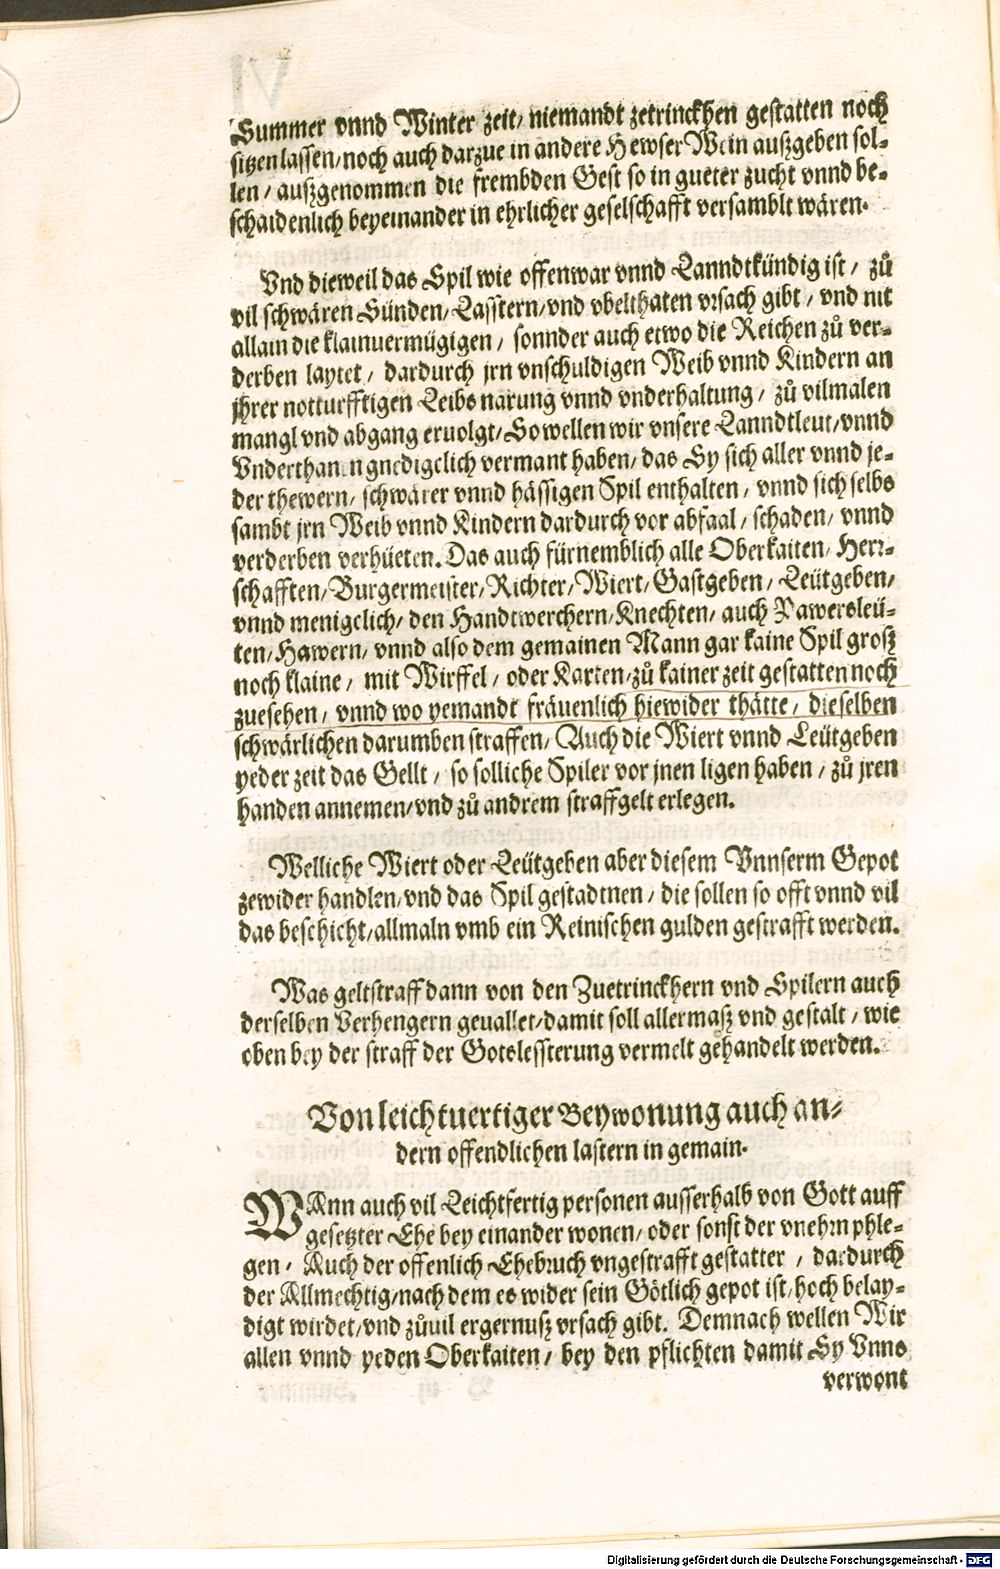 Summer vnnd Winter zeit/ niemandt zetrinckhen gestatten noch
sitzen lassen/ noch auch darzue in andere Hewser Wein auszgeben sol-
len / auszgenommen die frembden Gest so in gueter zucht vnnd be-
schaidenlich beyeinander in ehrlicher geselschafft versamblt wären.
Vnd dieweil das Spil wie offenwar vnnd Lanndtkündig ist / zů
vil schwären Sünden/ Lasstern/ vnd vbelthaten vrsach gibt / vnd nit
allain die klainuermügigen / sonnder auch etwo die Reichen zů ver-
derben laytet / dardurch jrn vnschuldigen Weib vnnd Kindern an
jhrer notturfftigen Leibs narung vnnd vnderhaltung / zů vilmalen
mangl vnd abgang eruolgt/ So wellen wir vnsere Lanndtleut/ vnnd
Vnderthanen gnedigelich vermant haben/ das Sy sich aller vnnd je-
der thewern/ schwärer vnnd hässigen Spil enthalten / vnnd sich selbs
sambt jrn Weib vnnd Kindern dardurch vor abfaal / schaden/ vnnd
verderben verhüeten. Das auch fürnemblich alle Oberkaiten/ Herr-
schafften/ Burgermeister/ Richter/ Wiert/ Gastgeben / Leütgeben/
vnnd menigclich/ den Handtwerchern/ Knechten/ auch Pawersleü-
ten/ Hawern/ vnnd also dem gemainen Mann gar kaine Spil grosz
noch klaine / mit Wirffel / oder Karten/ zů kainer zeit gestatten noch
zuesehen / vnnd wo yemandt fräuenlich hiewider thätte / dieselben
schwärlichen darumben straffen/ Auch die Wiert vnnd Leütgeben
yeder zeit das Gellt / so solliche Spiler vor jnen ligen haben / zů jren
handen annemen/ vnd zů andrem straffgelt erlegen.
Welliche Wiert oder Leütgeben aber diesem Vnnserm Gepot
zewider handlen/ vnd das Spil gestadtnen / die sollen so offt vnnd vil
das beschicht/ allmaln vmb ein Reinischen gulden gestrafft werden.
Was geltstraff dann von den Zuetrinckhern vnd Spilern auch
derselben Verhengern geuallet/ damit soll allermasz vnd gestalt / wie
oben bey der straff der Gotslessterung vermelt gehandelt werden.
Von leichtuertiger Beywonung auch an-
dern offendlichen lastern in gemain.
WAnn auch vil Leichtfertig personen ausserhalb von Gott auff
gesetzter Ehe bey einander wonen/ oder sonst der vnehrn phle-
gen / Auch der offenlich Ehebruch vngestrafft gestatter / dardurch
der Allmechtig/ nach dem es wider sein Götlich gepot ist/ hoch belay-
digt wirdet/ vnd zůuil ergernusz vrsach gibt. Demnach wellen Wir
allen vnnd yeden Oberkaiten / bey den pflichten damit Sy Vnns
verwont
Digitalisierung gefördert durch die Deutsche Forschungsgemeinschaft - DFG